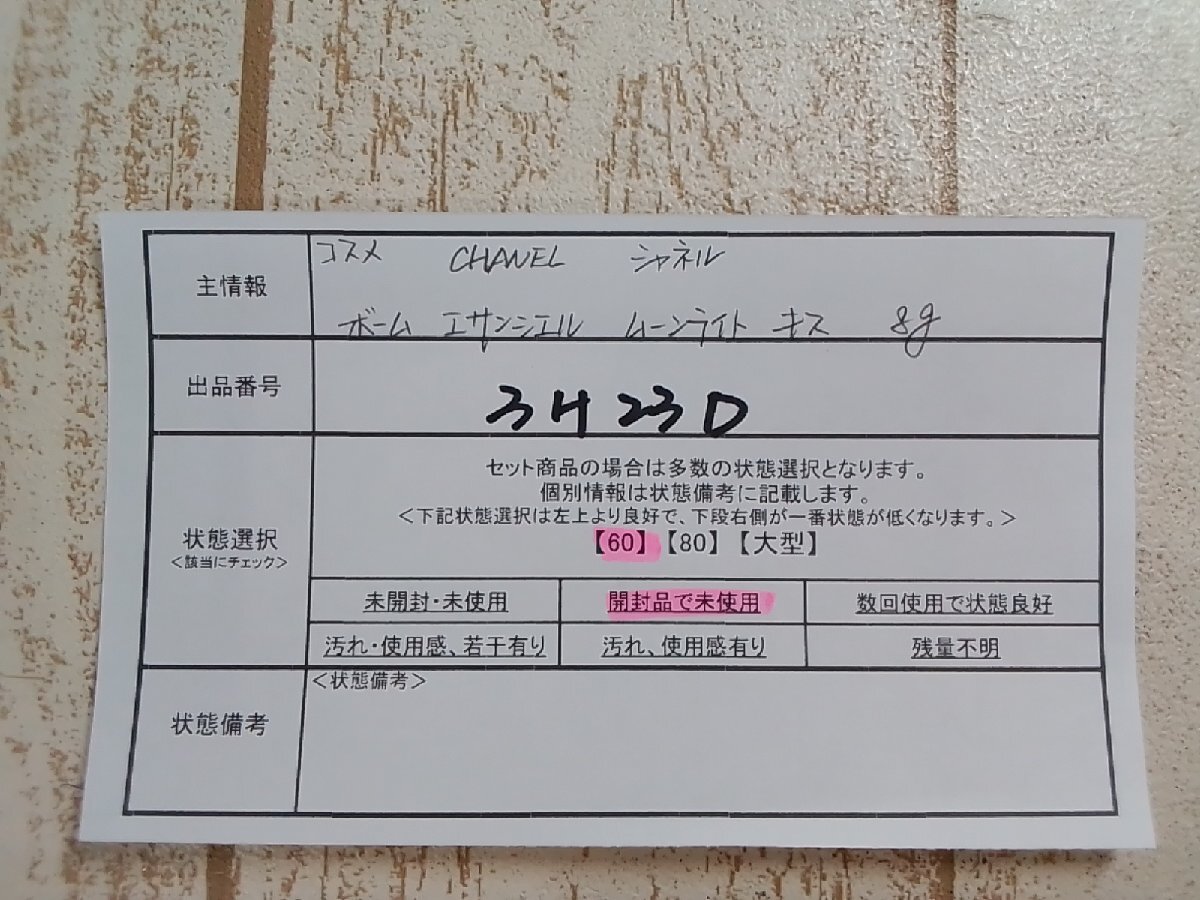 主情報
コスメ CHANEL シャネル
ボーム エサンシエル ムーンライト キス 8g
出品番号
3H23D
状態選択
<該当にチェック>
セット商品の場合は多数の状態選択となります。
個別情報は状態備考に記載します。
<下記状態選択は左上より良好で、下段右側が一番状態が低くなります。>
【60】【80】【大型】
未開封・未使用 開封品で未使用 数回使用で状態良好
汚れ・使用感、若干有り 汚れ、使用感有り 残量不明
状態備考
<状態備考>